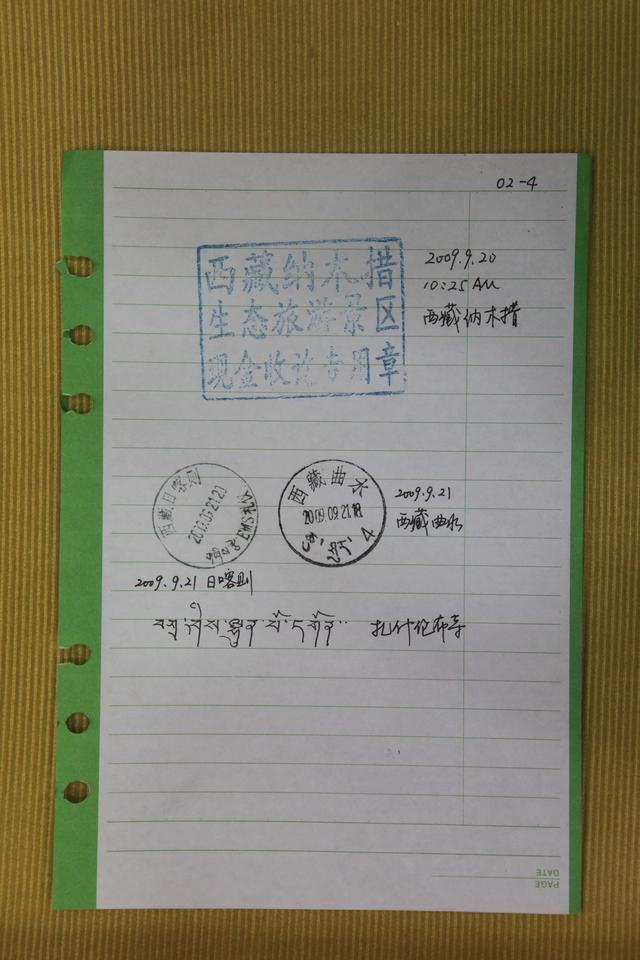 02-4
西藏纳木措
生态旅游景区
现金收讫专用章
2009.9.20
10:25 AM
西藏纳木措
西藏日喀则
西藏曲水
2009.09.21
4
2009.9.21
西藏曲水
2009.9.21 日喀则
扎什伦布寺
PAGE
DATE